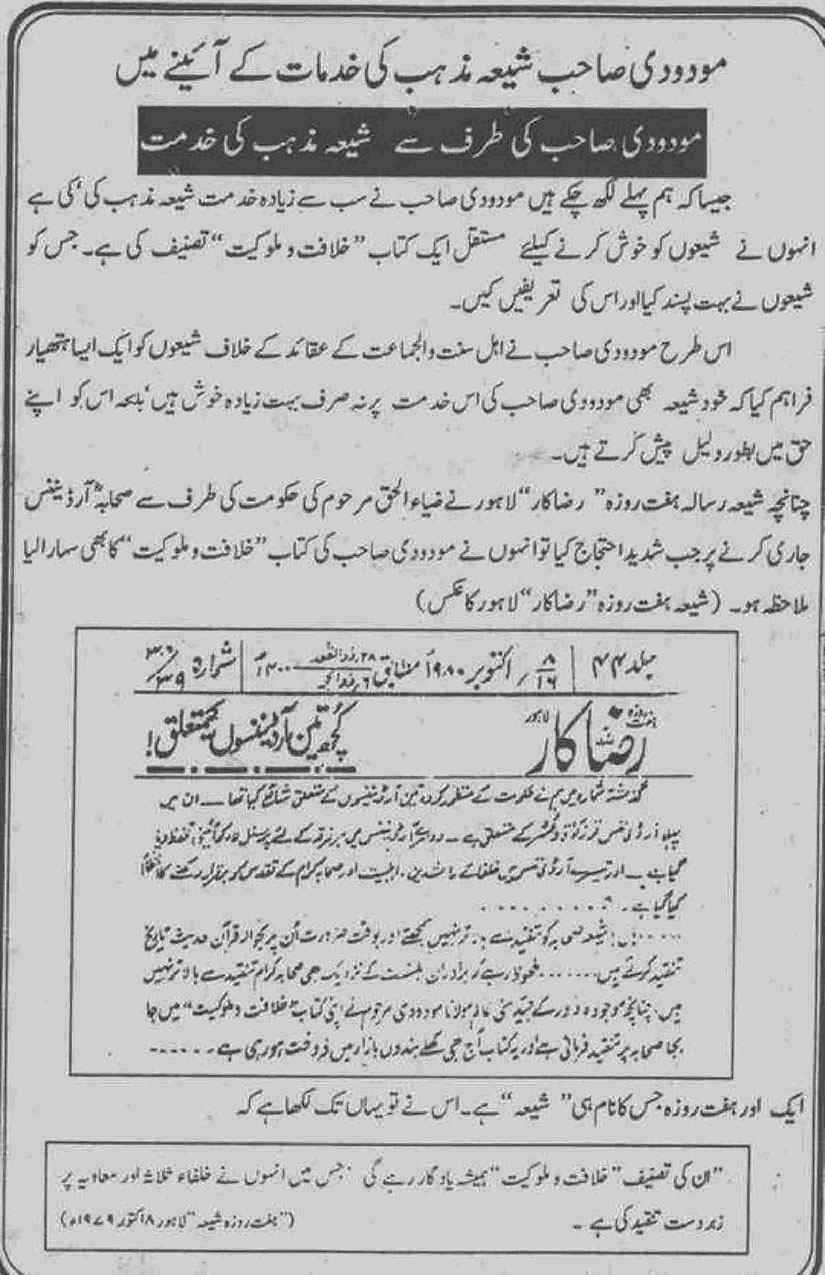 مودودی صاحب شیعہ مذہب کی خدمات کے آئینے میں
مودودی صاحب کی طرف سے شیعہ مذہب کی خدمت
جیسا کہ ہم پہلے لکھ چکے ہیں مودودی صاحب نے سب سے زیادہ خدمت شیعہ مذہب کی‘ کی ہے
انہوں نے شیعوں کو خوش کرنے کیلئے مستقل ایک کتاب "خلافت و ملوکیت" تصنیف کی ہے۔ جس کو
شیعوں نے بہت پسند کیا اور اس کی تعریفیں کیں۔
اس طرح مودودی صاحب نے اہل سنت والجماعت کے عقائد کے خلاف شیعوں کو ایک ایسا ہتھیار
فراہم کیا کہ خود شیعہ بھی مودودی صاحب کی اس خدمت پر نہ صرف بہت زیادہ خوش ہیں‘ بلکہ اس کو اپنے
حق میں بطور دلیل پیش کرتے ہیں۔
چنانچہ شیعہ رسالہ ہفت روزہ "رضاکار" لاہور نے ضیاء الحق مرحوم کی حکومت کی طرف سے صحابہؓ آرڈیننس
جاری کرنے پر جب شدید احتجاج کیا تو انہوں نے مودودی صاحب کی کتاب "خلافت و ملوکیت" کا بھی سہارا لیا
ملاحظہ ہو۔ (شیعہ ہفت روزہ "رضاکار" لاہور کا عکس)
جلد ۴۴ | ۸/۱۶ اکتوبر ۱۹۸۰ء مطابق ۲۸ ذوالقعد / ۶ ذوالحجہ ۱۴۰۰ھ | شمارہ ۳۶/۳۹
ہفت روزہ رضاکار لاہور
کچھ تین آرڈیننسوں کے متعلق!
گذشتہ شمارہ میں ہم نے حکومت کے منظور کردہ تین آرڈیننسوں کے متعلق شائع کیا تھا — ان میں
پہلا آرڈیننس تو زکوٰۃ و عشر کے متعلق ہے۔ دوسرے آرڈیننس میں ہر فرقہ کے لئے پرسنل لاء کو آئینی تحفظ دیا
گیا ہے۔ اور تیسرے آرڈیننس میں خلفائے راشدین، اہلبیت اور صحابہ کرام کے تقدس کو برقرار رکھنے کا
کہا گیا ہے۔ . . . . . . . . .
. . . . . ہاں! شیعہ صحابہ کو تنقید سے بالاتر نہیں سمجھتے اور بوقت ضرورت اُن پر بحوالہ قرآن حدیث تاریخ
تنقید کرتے ہیں . . . . . . ملحوظ رہے کہ برادران اہلسنت کے نزدیک بھی صحابہ کرام تنقید سے بالاتر نہیں
ہیں۔ چنانچہ موجودہ دور کے جید سنی عالم مولانا مودودی مرحوم نے اپنی کتاب "خلافت و ملوکیت" میں جا
بجا صحابہ پر تنقید فرمائی ہے اور یہ کتاب آج بھی کھلے بندوں بازار میں فروخت ہو رہی ہے۔ . . . . . .
ایک اور ہفت روزہ جس کا نام ہی "شیعہ" ہے۔ اس نے تو یہاں تک لکھا ہے کہ
"ان کی تصنیف "خلافت و ملوکیت" ہمیشہ یادگار رہے گی جس میں انہوں نے خلفاء ثلاثہ اور معاویہ پر
زبردست تنقید کی ہے۔ ("ہفت روزہ شیعہ" لاہور ۸ اکتوبر ۱۹۷۹ء)